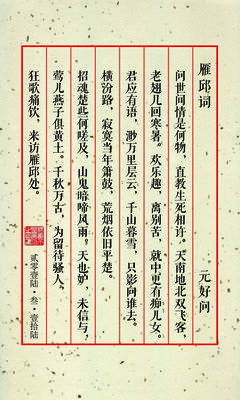 雁邱词
元好问
问世间情是何物，直教生死相许。天南地北双飞客，
老翅儿回寒暑。欢乐趣，离别苦，就中更有痴儿女。
君应有语，渺万里层云，千山暮雪，只影向谁去。
横汾路，寂寞当年箫鼓，荒烟依旧平楚。
招魂楚些何嗟及，山鬼喑啼风雨。天也妒，未信与，
莺儿燕子俱黄土。千秋万古，为留待骚人，
狂歌痛饮，来访雁邱处。
贰零壹陆·叁·壹拾陆